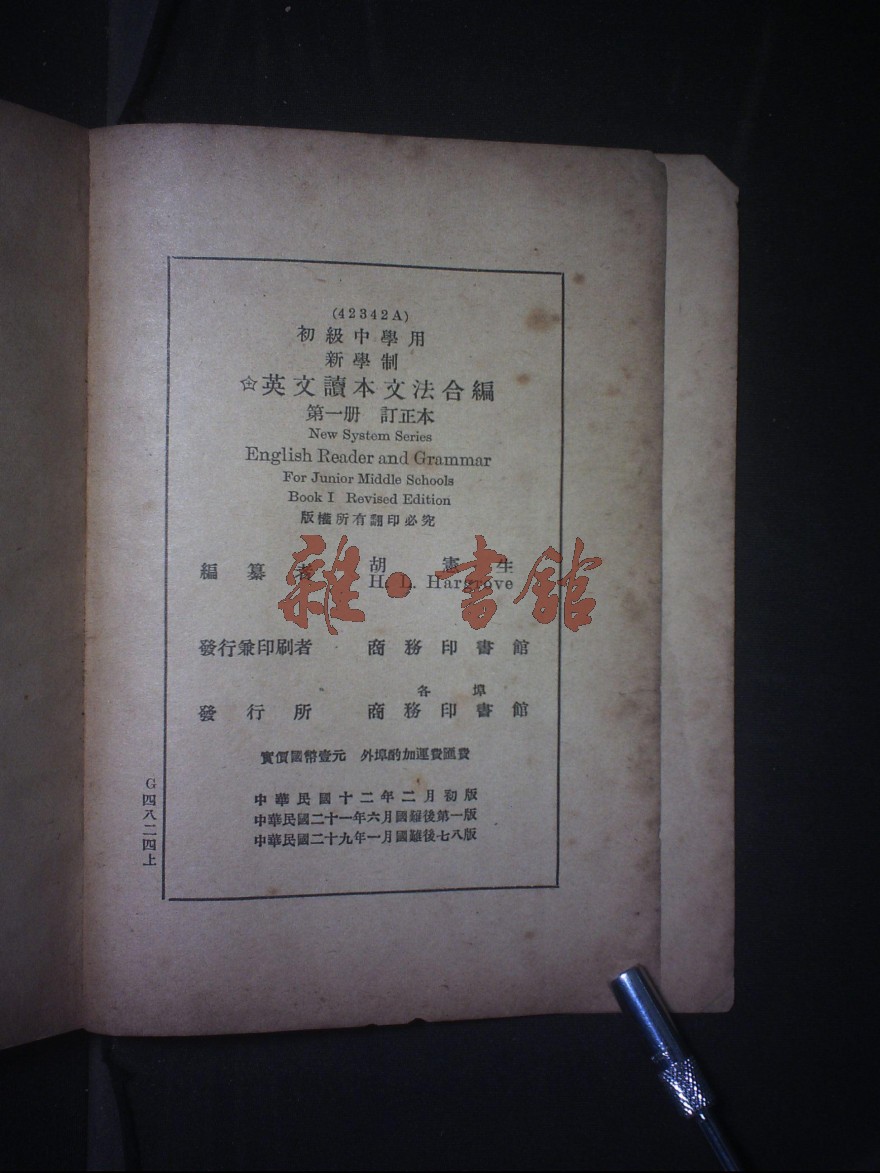 (42342A)
初級中學用
新學制
英文讀本文法合編
第一册 訂正本
New System Series
English Reader and Grammar
For Junior Middle Schools
Book I Revised Edition
版權所有翻印必究
編纂者 胡憲生
H. L. Hargrove
雜·書館
發行兼印刷者 商務印書館
各埠
發行所 商務印書館
實價國幣壹元 外埠酌加運費匯費
中華民國十二年二月初版
中華民國二十一年六月國難後第一版
中華民國二十九年一月國難後七八版
G四八二四上